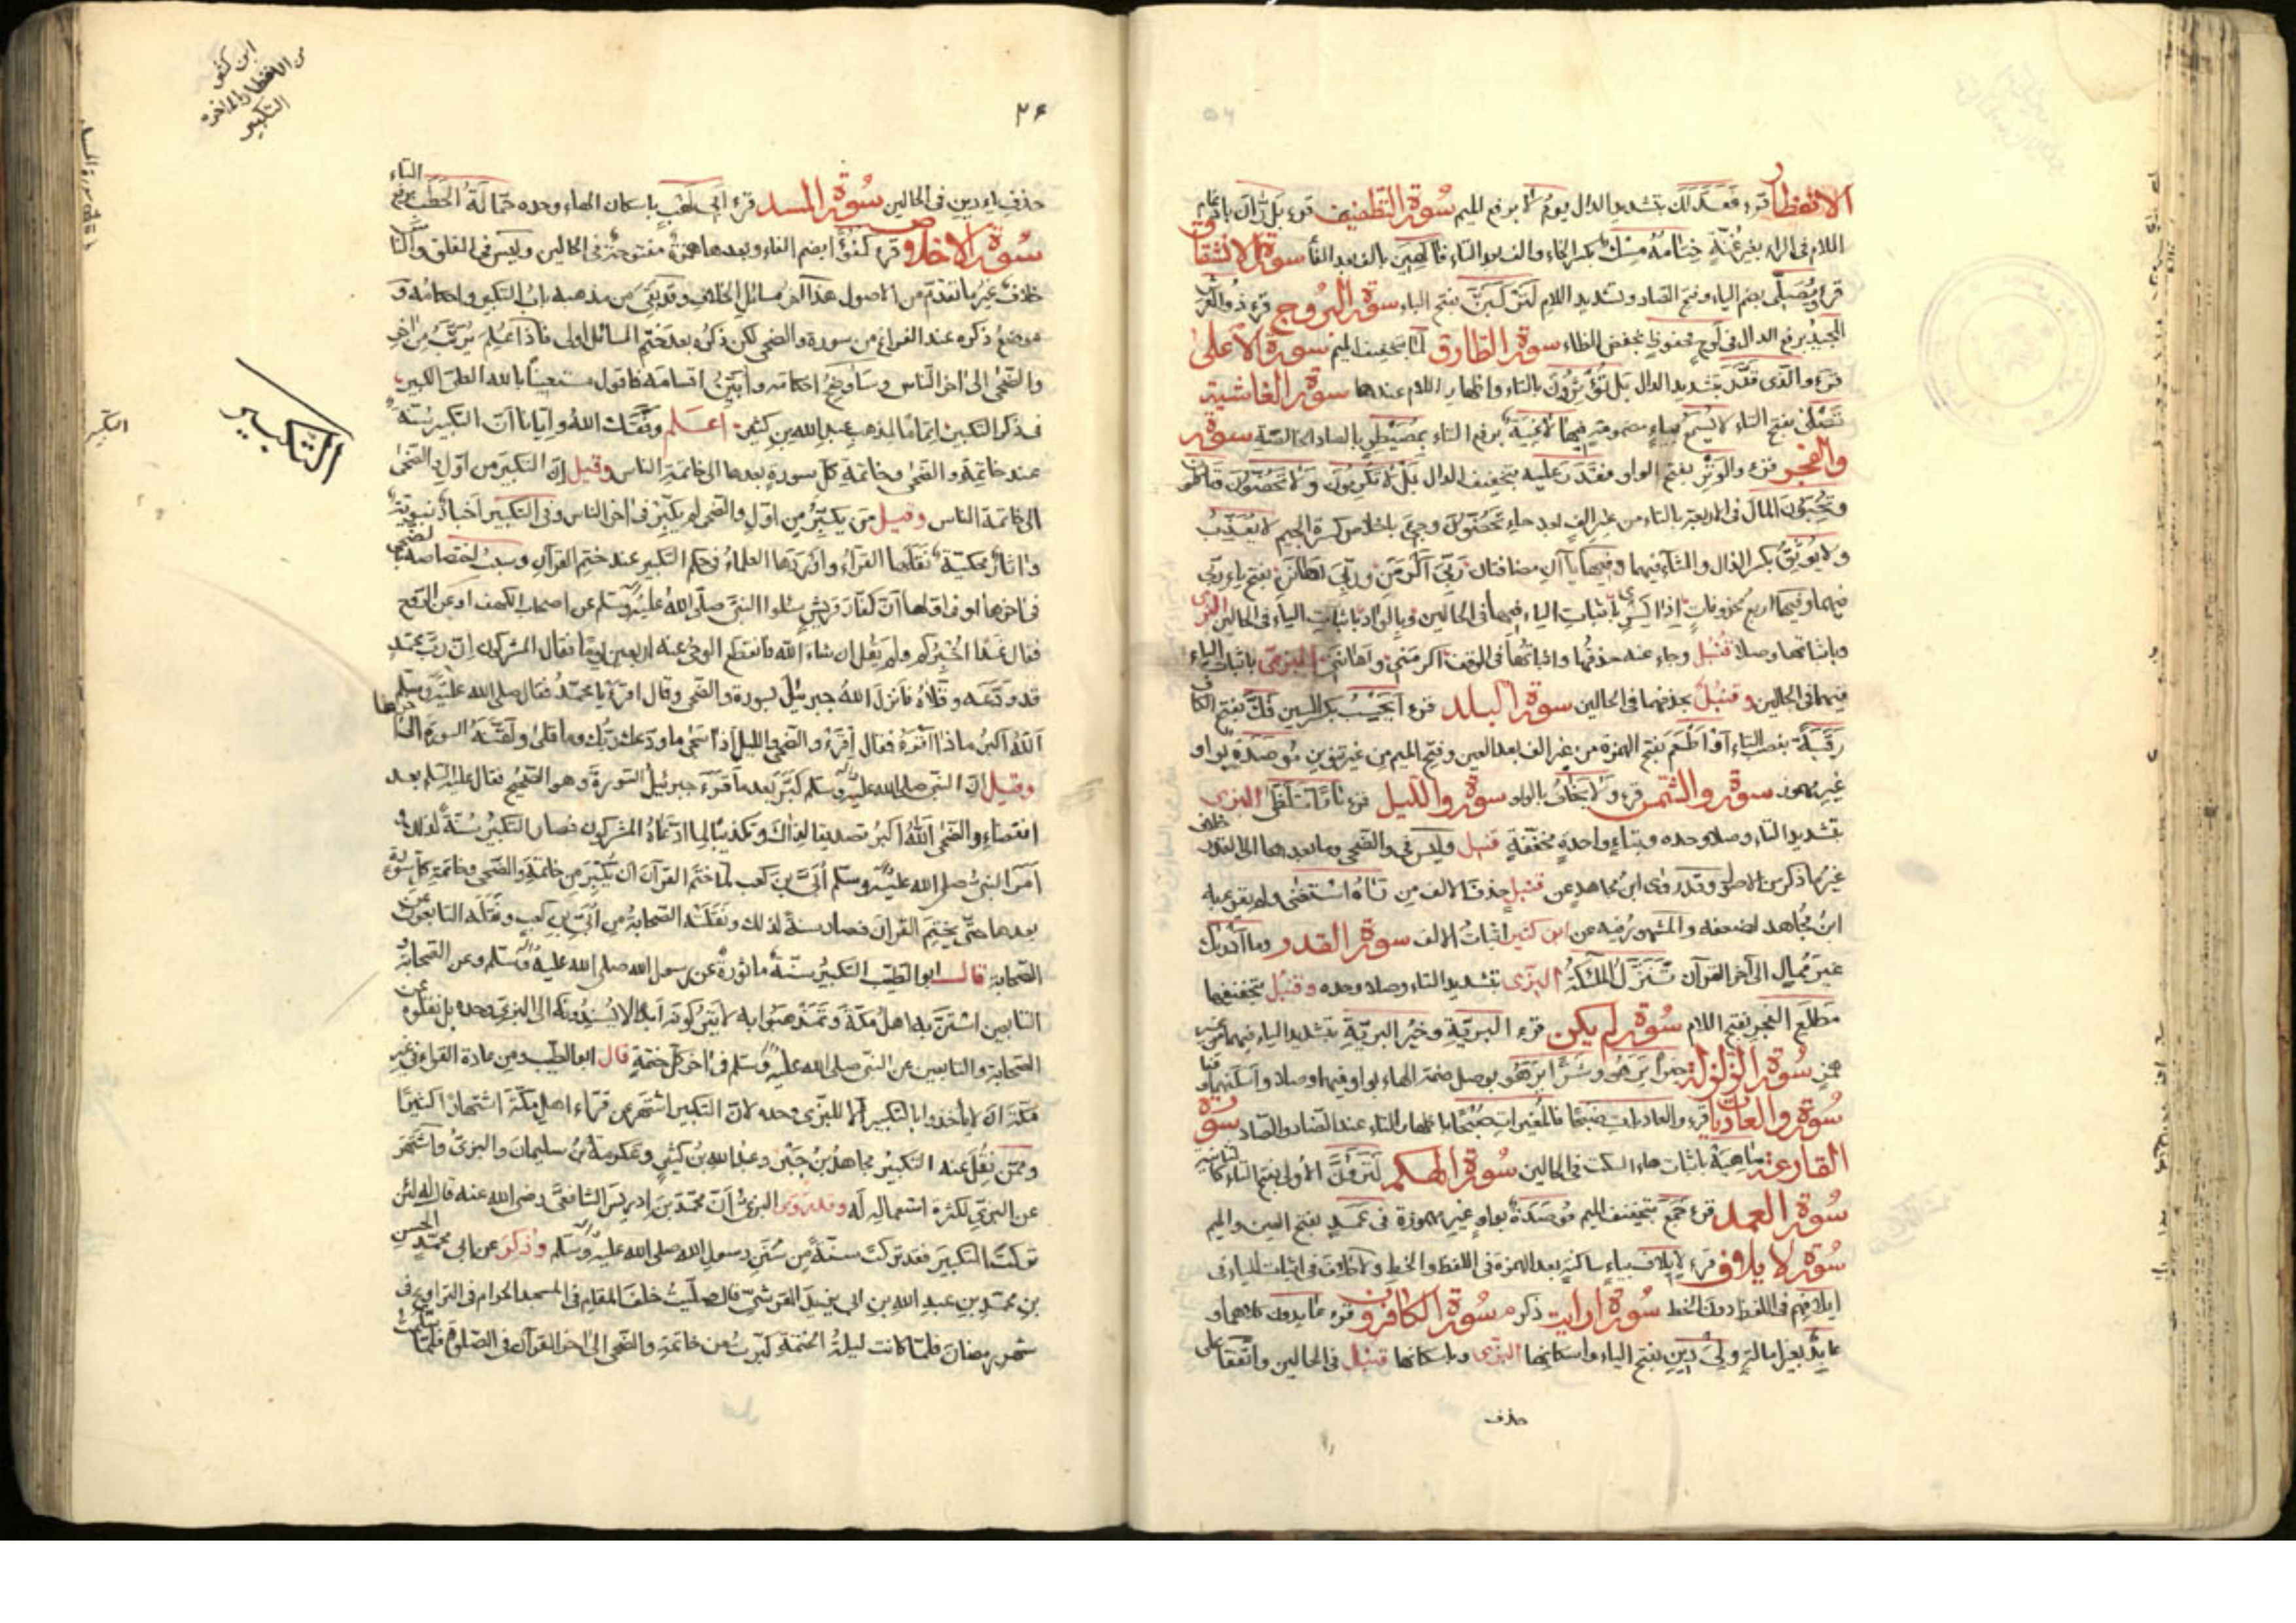 الانفطار قرء فَعَدَّلَكَ بتشديد الدال يومُ لا برفع الميم سورة التطفيف قرء بَل رَّانَ بادغام
اللام فى الراء بغير غنّة خِتامُهُ مِسْكٌ بكسر الخاء والف بعد التاء فَاكِهِينَ بالف بعد الفاء سورة الانشقاق
قرء ويُصَلَّى بضم الياء وفتح الصاد وتشديد اللام لَتَرْكَبَنَّ بفتح الباء سورة البروج قرء ذُو العَرْشِ
المجيدُ برفع الدال فى لَوحٍ محفوظٍ بخفض الظاء سورة الطارق لَمَا بتخفيف الميم سورة الاعلى
قرء والَّذى قَدَّرَ بتشديد الدال بَل تُؤْثِرُونَ بالتاء واظهار اللام عندها سورة الغاشية
تَصْلَى بفتح التاء لا يُسْمَعُ بياءٍ مضمومة فيها لاغِيَةٌ برفع التاء بِمُصَيْطِرٍ بالصاد الخالصة سورة
والفجر قرء والوَتْرِ بفتح الواو فَقَدَرَ عليه بتخفيف الدال بَل لا تُكْرِمُونَ ولا تَحُضُّونَ وتَأكُلُونَ
وتُحِبُّونَ المالَ فى الاربعة بالتاء من غير الفٍ بعد حاءِ تَحُضُّونَ وجِىءَ باخلاص كسرة الجيم لا يُعَذِّبُ
ولا يُوثِقُ بكسر الذال والثاء فيهما وفيها يا آنِ مضافتان رَبِّىَ أكْرَمَنِ ورَبِّىَ أهَانَنِ بفتح ياء ربّى
فيهما وفيها اربع محذوفاتٍ اذا يَسْرِى باثبات الياء فيهما فى الحالين وبالوادِ باثبات الياء فى الحالين البزى
وباثباتها وصلا قنبل وجاء عنه حذفها واثباتها فى الوقف اكرمنى واهاننى البزى باثبات الياء
فيهما فى الحالين وقنبل بحذفهما فى الحالين سورة البلد قرء أيَحْسِبُ بكسر السين فَكَّ بفتح الكاف
رَقَبَةً بنصب التاء أوْ أطْعَمَ بفتح الهمزة من غير الف بعد العين وفتح الميم من غير تنوين مُوصَدَةٌ بواو
غير مهموز سورة والشمس قرء ولا يَخَافُ بالواو سورة والليل قرء نَاراً تَلَظَّى البزى
بتشديد التاء وصلا وحده وبتاءٍ واحدةٍ مخفّفةٍ قنبل وليس فى والضحى وما بعدها الى القدر خلاف
غير ما ذكر من الاصل وقد روى ابن مجاهد عن قنبل حذف الالف من رَآهُ اسْتَغْنَى ولم يقرء به
ابنُ مجاهد لضعفه والمشهور فيه عن ابن كثير اثبات الالف سورة القدر وما ادريك
غير ممالٍ الى آخر القرآن تَنَزَّلُ المَلٰئِكَةُ البزى بتشديد التاء وصلا وحده وقنبل بتخفيفها
مَطْلَعِ الفجر بفتح اللام سورة لم يكن قرء البَرِيَّةِ وخَيْرُ البَرِيَّةِ بتشديد الياء فيهما من غير
همز سورة الزلزلة خيراً يَرَهُو وشرّاً يَرَهُو بوصل ضمة الهاء بواو فيهما وصلا واسكنهما وقفا
سورة والعاديات قرء والعاديات ضبحاً فالمغيرات صبحاً باظهار التاء عند الضاد والصاد سورة
القارعة مَاهِيَهْ باثبات هاء السكت فى الحالين سورة الهٰكم لَتَرَوُنَّ الاولى بفتح التاء كالثانية
سورة العمد قرء جَمَعَ بتخفيف الميم مُوصَدَةٌ بواو غير مهموزة فى عَمَدٍ بفتح العين والميم
سورة لايلاف قرء لِإيلافِ بياءٍ ساكنةٍ بعد الهمزة فى اللفظ والخط ولا خلاف فى اثبات الياء فى
ايلافهم فى اللفظ دون الخط سورة ارايت ذكر سورة الكافرون قرء عابدون كلاهما و
عابدٌ بغير امالةٍ ولِىَ دِينِ بفتح الياء واسكانها البزى وباسكانها قنبل فى الحالين واتفقا على
حذف
٣۴
ابن كثير
من الانفطار الى اخره
التكبير
حذف ياء دينِ فى الحالين سورة المسد قرء أبى لَهْبٍ باسكان الهاء وحده حَمَّالَةُ الحَطَبِ برفع التاء
سورة الاخلاص قرء كُفُؤاً بضم الفاء وبعدها همزة مفتوحة فى الحالين وليس فى الفلق والناس
خلاف غير ما تقدم من الاصول هذا آخر مسائل الخلاف وقد بقى من مذهبه باب التكبير واحكامه و
موضع ذكره عند الفراغ من سورة والضحى لكن ذكره بعد ختم المسائل اولى فاذا عُلِمَ يُرَتَّبُ من اخر
والضحى الى اخر الناس وسأوضح احكامه وأبيّن اقسامه فاقول مستعيناً بالله العلى الكبير
فى ذكر التكبير اتماماً لمذهب عبد الله بن كثير اعلم وفقك الله وايانا انّ التكبير سنّة
عند خاتمة والضحى وخاتمة كل سورة بعدها الى خاتمة الناس وقيل انّ التكبير من اوّل والضحى
الى خاتمة الناس وقيل من يكبّر من اوّل والضحى لم يكبّر فى اخر الناس وفى التكبير اخبارٌ نبويّة
واثارٌ محكيّة نقلها القرّاء واوردها العلماء وحكم التكبير عند ختم القرآن وسبب اختصاصه بالضحى
فى اخرها او فى اوّلها انّ كفّار قريش سئلوا النبى صلّى الله عليه وسلّم عن اصحاب الكهف او عن الروح
فقال غداً اُخبركم ولم يقل ان شاء الله فانقطع الوحى عنه اربعين يوماً فقال المشركون انّ ربّ محمّد
قد ودّعه وقلاه فانزل الله جبرئيل بسورة والضحى وقال اقرء يا محمّد فقال صلى الله عليه وسلّم
الله اكبر ماذا اقرء فقال اقرء والضحى والليل اذا سجى ما ودّعك ربّك وما قلى ولقّنه السورة الى اخرها
وقيل انّ النبى صلى الله عليه وسلم كبّر بعد ما قرء جبرئيل السورة وهو الصحيح فقال عليه السلم بعد
انقضاء والضحى الله اكبر تصديقا لذلك وتكذيبا لما ادّعاه المشركون فصار التكبير سنّة لذلك و
امر النبى صلى الله عليه وسلم أبىّ بن كعب لمّا ختم القرآن ان يكبّر من خاتمة والضحى وخاتمة كل سورة
بعدها حتّى يختم القرآن فصار سنة لذلك ونقلته الصحابة من أبىّ بن كعب ونقله التابعون عن
الصحابة قال ابو الطيّب التكبير سنّة ماثورة عن رسول الله صلى الله عليه وسلّم وعن الصحابة و
التابعين اشتهر به اهل مكّة وتمذهبوا به لا يتركونه ابدا لا يُسندونه الى البزى وحده بل نقلوه عن
الصحابة والتابعين عن النبى صلى الله عليه وسلم فى اخر كل ختمة قال ابو الطيب ومن عادة القراء فى غير
مكّة ان لا يأخذوا بالتكبير الّا للبزى وحده لانّ التكبير اشتهر عن قراء اهل مكّة اشتهاراً كثيراً
وممّن نقل عنه التكبير مجاهد بن جبر وعبد الله بن كثير وعكرمة بن سليمان والبزى واشتهر
عن البزى لكثرة استعماله له وقد روى البزى انّ محمّد بن ادريس الشافعى رضى الله عنه قال له لئن
تركت التكبير فقد تركت سنّة من سنن رسول الله صلى الله عليه وسلم وذكر عن ابى محمّد الحسن
بن محمّد بن عبد الله بن ابى يزيد القرشى قال صلّيت خلف المقام فى المسجد الحرام فى التراويح فى
شهر رمضان فلمّا كانت ليلة الختمة كبّرت من خاتمة والضحى الى اخر القرآن فى الصلوة فلمّا سلّمت
التكبير
التكبير